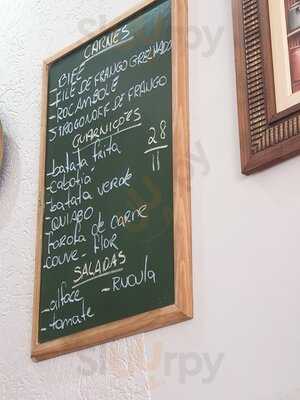 CARNES
- BIFE
- FILE DE FRANGO GRELHADO
- ROCAMBOLE
STROGONOFF DE FRANGO
GUARNIÇÕES
- batata frita
- cabotiá
- batata verde
- QUIABO
farofa de carne
couve - FLOR
28
11
SALADAS
- alface - RUCULA
- tomate
Sluurpy
Sluurpy
Sluurpy